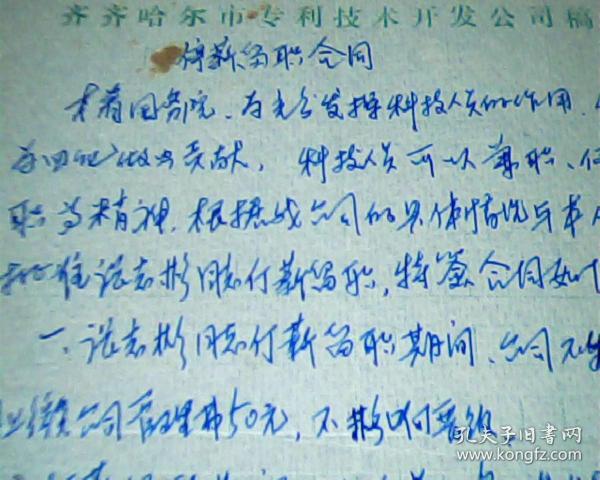 齐齐哈尔市专利技术开发公司稿
停薪留职合同
本着国务院、为充分发挥科技人员的作用、
为四化做出贡献，科技人员可以兼职、
职为精神，根据我公司的具体情况与本人
批准 志彬同志停薪留职，特签合同如下
一、 志彬同志停薪留职期间、公司不
上缴公司管理费50元，不
孔夫子旧书网
www.kongfz.com